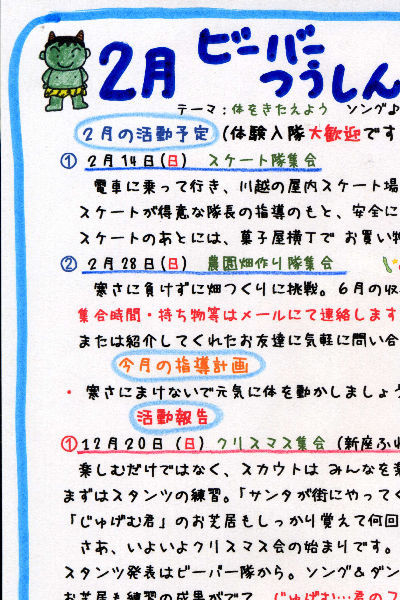 2月 ビーバー
つうしん
テーマ：体をきたえよう ソング♪
2月の活動予定 (体験入隊大歓迎です
① 2月14日(日) スケート隊集会
電車に乗って行き、川越の屋内スケート場
スケートが得意な隊長の指導のもと、安全に
スケートのあとには、菓子屋横丁で お買い物
② 2月28日(日) 農園畑作り隊集会
寒さに負けずに畑つくりに挑戦。6月の収
集合時間・持ち物等はメールにて連絡します
または紹介してくれたお友達に気軽に問い合
今月の指導計画
・寒さにまけないで元気に体を動かしましょう
活動報告
①12月20日（日）クリスマス集会(新座ふれ
楽しむだけではなく、スカウトは みんなを楽
まずはスタンツの練習。「サンタが街にやってく
「じゅげむ君」のお芝居もしっかり覚えて何回
さあ、いよいよクリスマス会の始まりです。
スタンツ発表はビーバー隊から。ソング&ダン
お芝居も練習の成果がでて、じゅげむ…君のフ